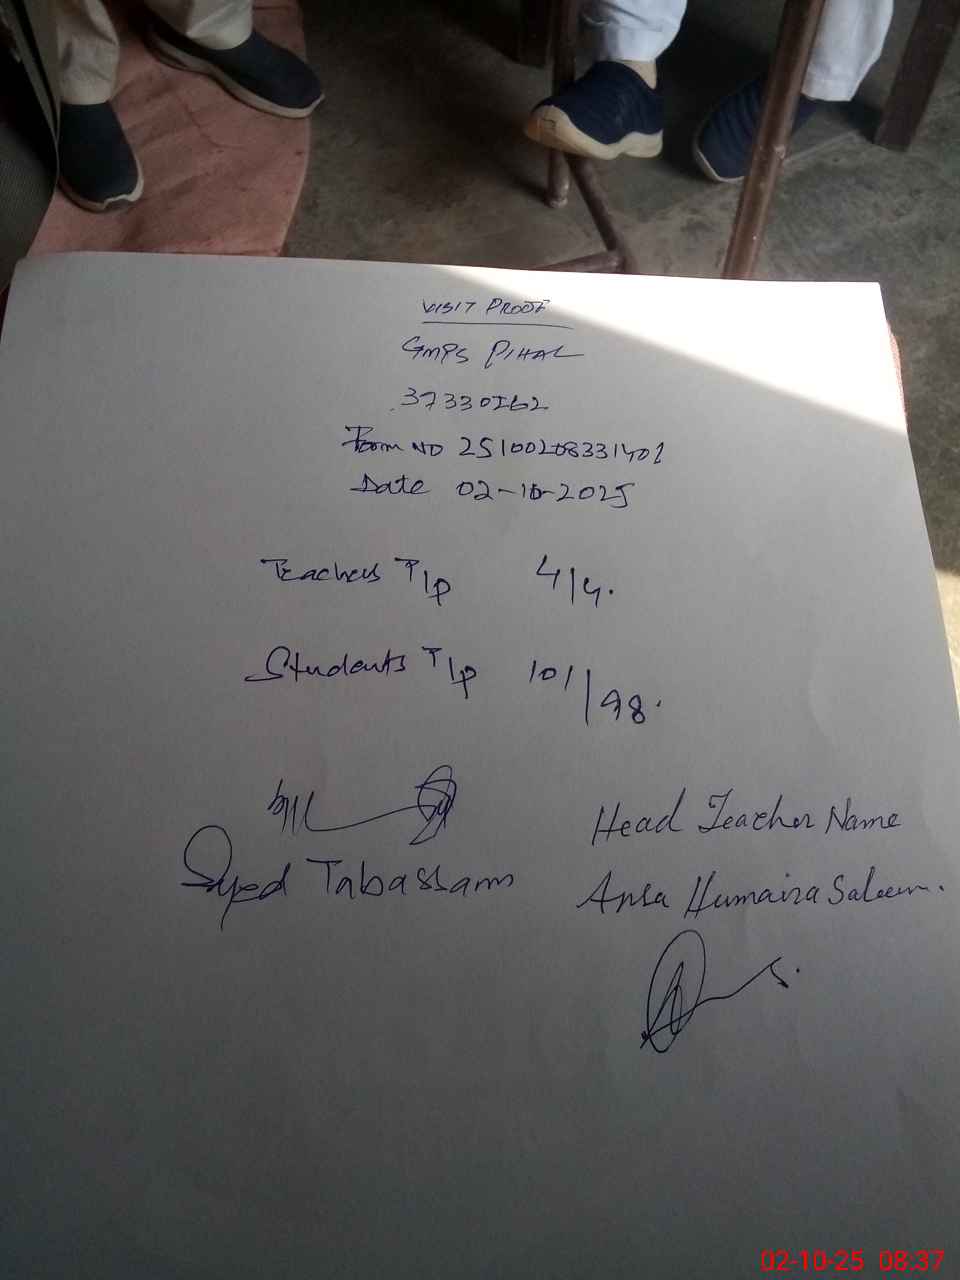 VISIT PROOF
GMPS PIHAL
37330262
Form NO 25100208331401
Date 02-10-2025
Teachers T/P 4/4.
Students T/P 101/98.
Head Teacher Name
Syed Tabassam
Ansa Humaira Saleem.
02-10-25 08:37